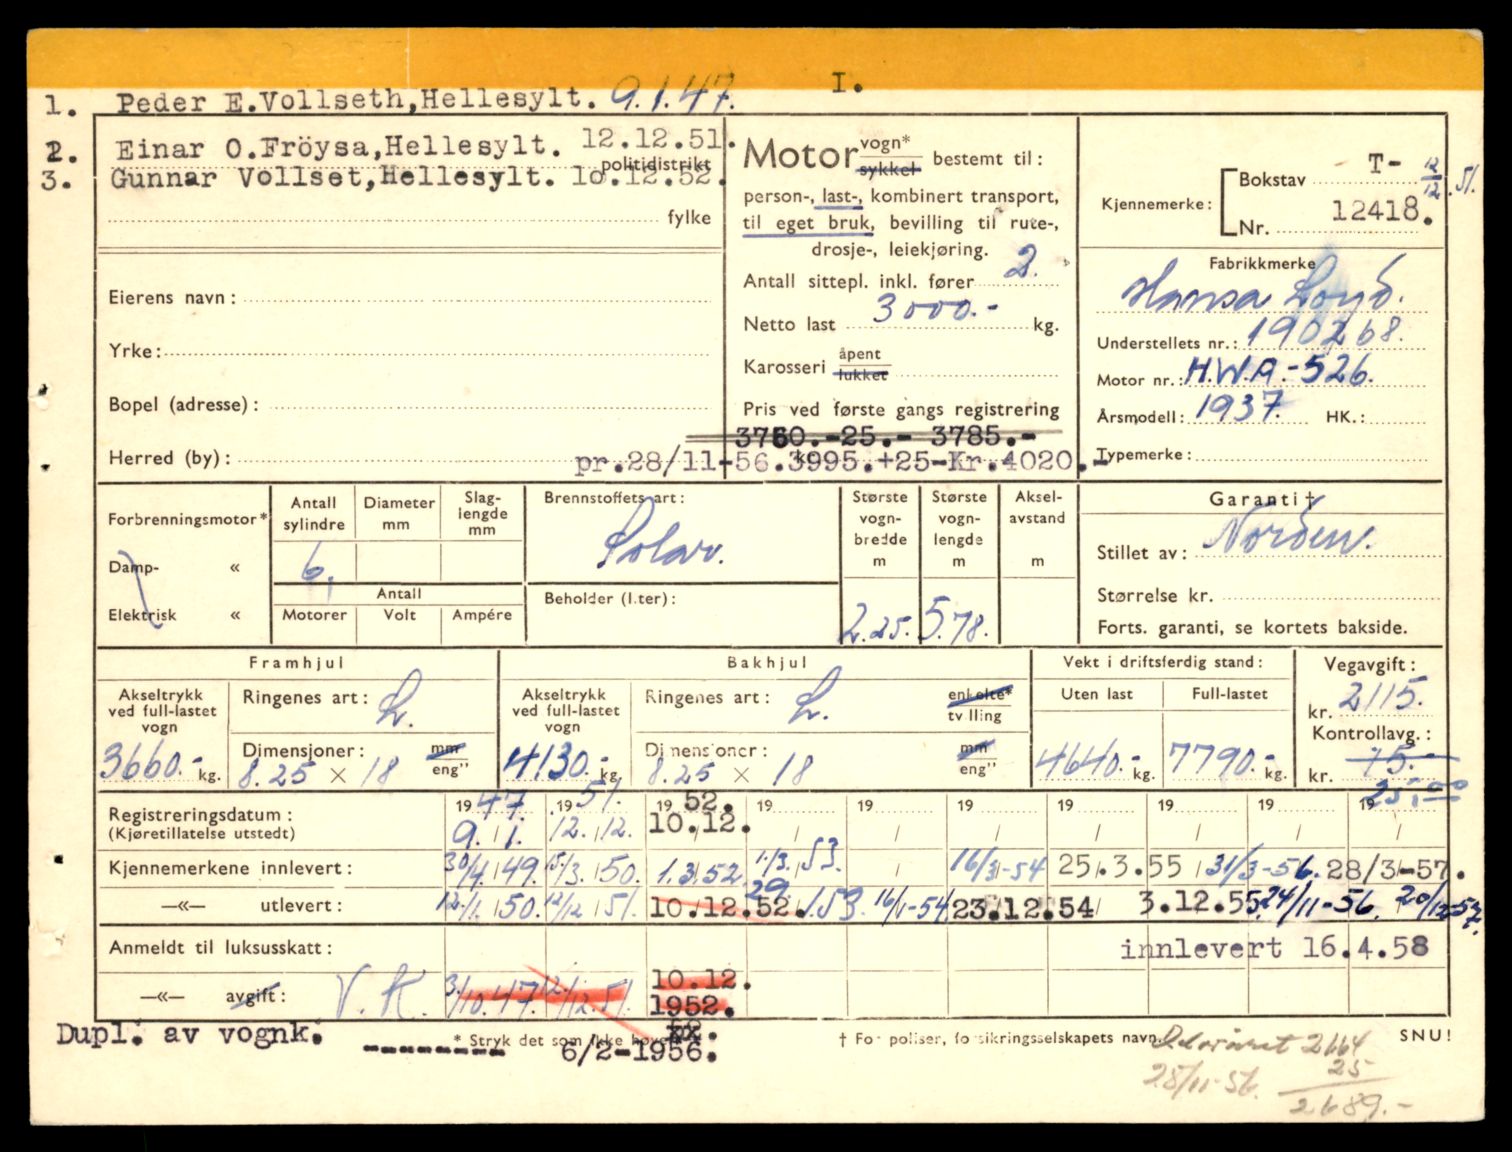 I.
1. Peder E.Vollseth,Hellesylt. 9.1.47.
2. Einar O.Fröysa,Hellesylt. 12.12.51.
politidistrikt
3. Gunnar Vollset,Hellesylt. 10.12.52.
fylke
Eierens navn:
Yrke:
Bopel (adresse):
Herred (by):
Motor vogn* sykkel bestemt til:
person-, last-, kombinert transport,
til eget bruk, bevilling til rute-,
drosje-, leiekjøring.
Antall sittepl. inkl. fører 2.
Netto last 3000.- kg.
Karosseri åpent lukket
Pris ved første gangs registrering
3760.-25.- 3785.-
pr.28/11-56. 3995.+25-Kr.4020.-
Kjennemerke: Bokstav T- 12/12.51.
Nr. 12418.
Fabrikkmerke
Hansa Loyd.
Understellets nr.: 190268.
Motor nr.: H.W.A.-526.
Årsmodell: 1937. HK.:
Typemerke:
Forbrenningsmotor*
Damp- «
Elektrisk «
Antall sylindre
6.
Diameter mm
Slag- lengde mm
Antall
Motorer Volt Ampére
Brennstoffets art:
Solar.
Beholder (liter):
Største vogn- bredde m
2.25.
Største vogn- lengde m
5.78.
Aksel- avstand m
Garanti †
Stillet av: Norden.
Størrelse kr.
Forts. garanti, se kortets bakside.
Framhjul
Akseltrykk ved full-lastet vogn
3660.- kg.
Ringenes art: L.
Dimensjoner: mm
8.25 × 18 eng"
Bakhjul
Akseltrykk ved full-lastet vogn
4130.- kg.
Ringenes art: L. enkelte* tvilling
Dimensjoner: mm
8.25 × 18 eng"
Vekt i driftsferdig stand:
Uten last Full-lastet
4640.- kg. 7790.- kg.
Vegavgift:
kr. 2115.
Kontrollavg.:
kr. 15.-
25,00
Registreringsdatum: 1947. 1951. 1952. 19 19 19 19 19 19 19
(Kjøretillatelse utstedt) 9./1. 12./12. 10.12.
Kjennemerkene innlevert: 30/4 49. 15/3. 50. 1.3.52. 1/3.53. 16/3-54 25.3.55 31/3-56. 28/3-57.
—«— utlevert: 12/1. 50. 12/12 51. 10.12.52. 29/1.53. 16/1-54 23.12.54 3.12.55 24/11-56. 20/12-57.
Anmeldt til luksusskatt: innlevert 16.4.58
—«— avgift: V.K. 3/10.47. 12/12.51. 10.12.
1952.
Dupl. av vognk. -------- 6/2-1956.
* Stryk det som ikke høver
† For poliser, forsikringsselskapets navn.
SNU!
2664
28/11-56. 25
2689.-